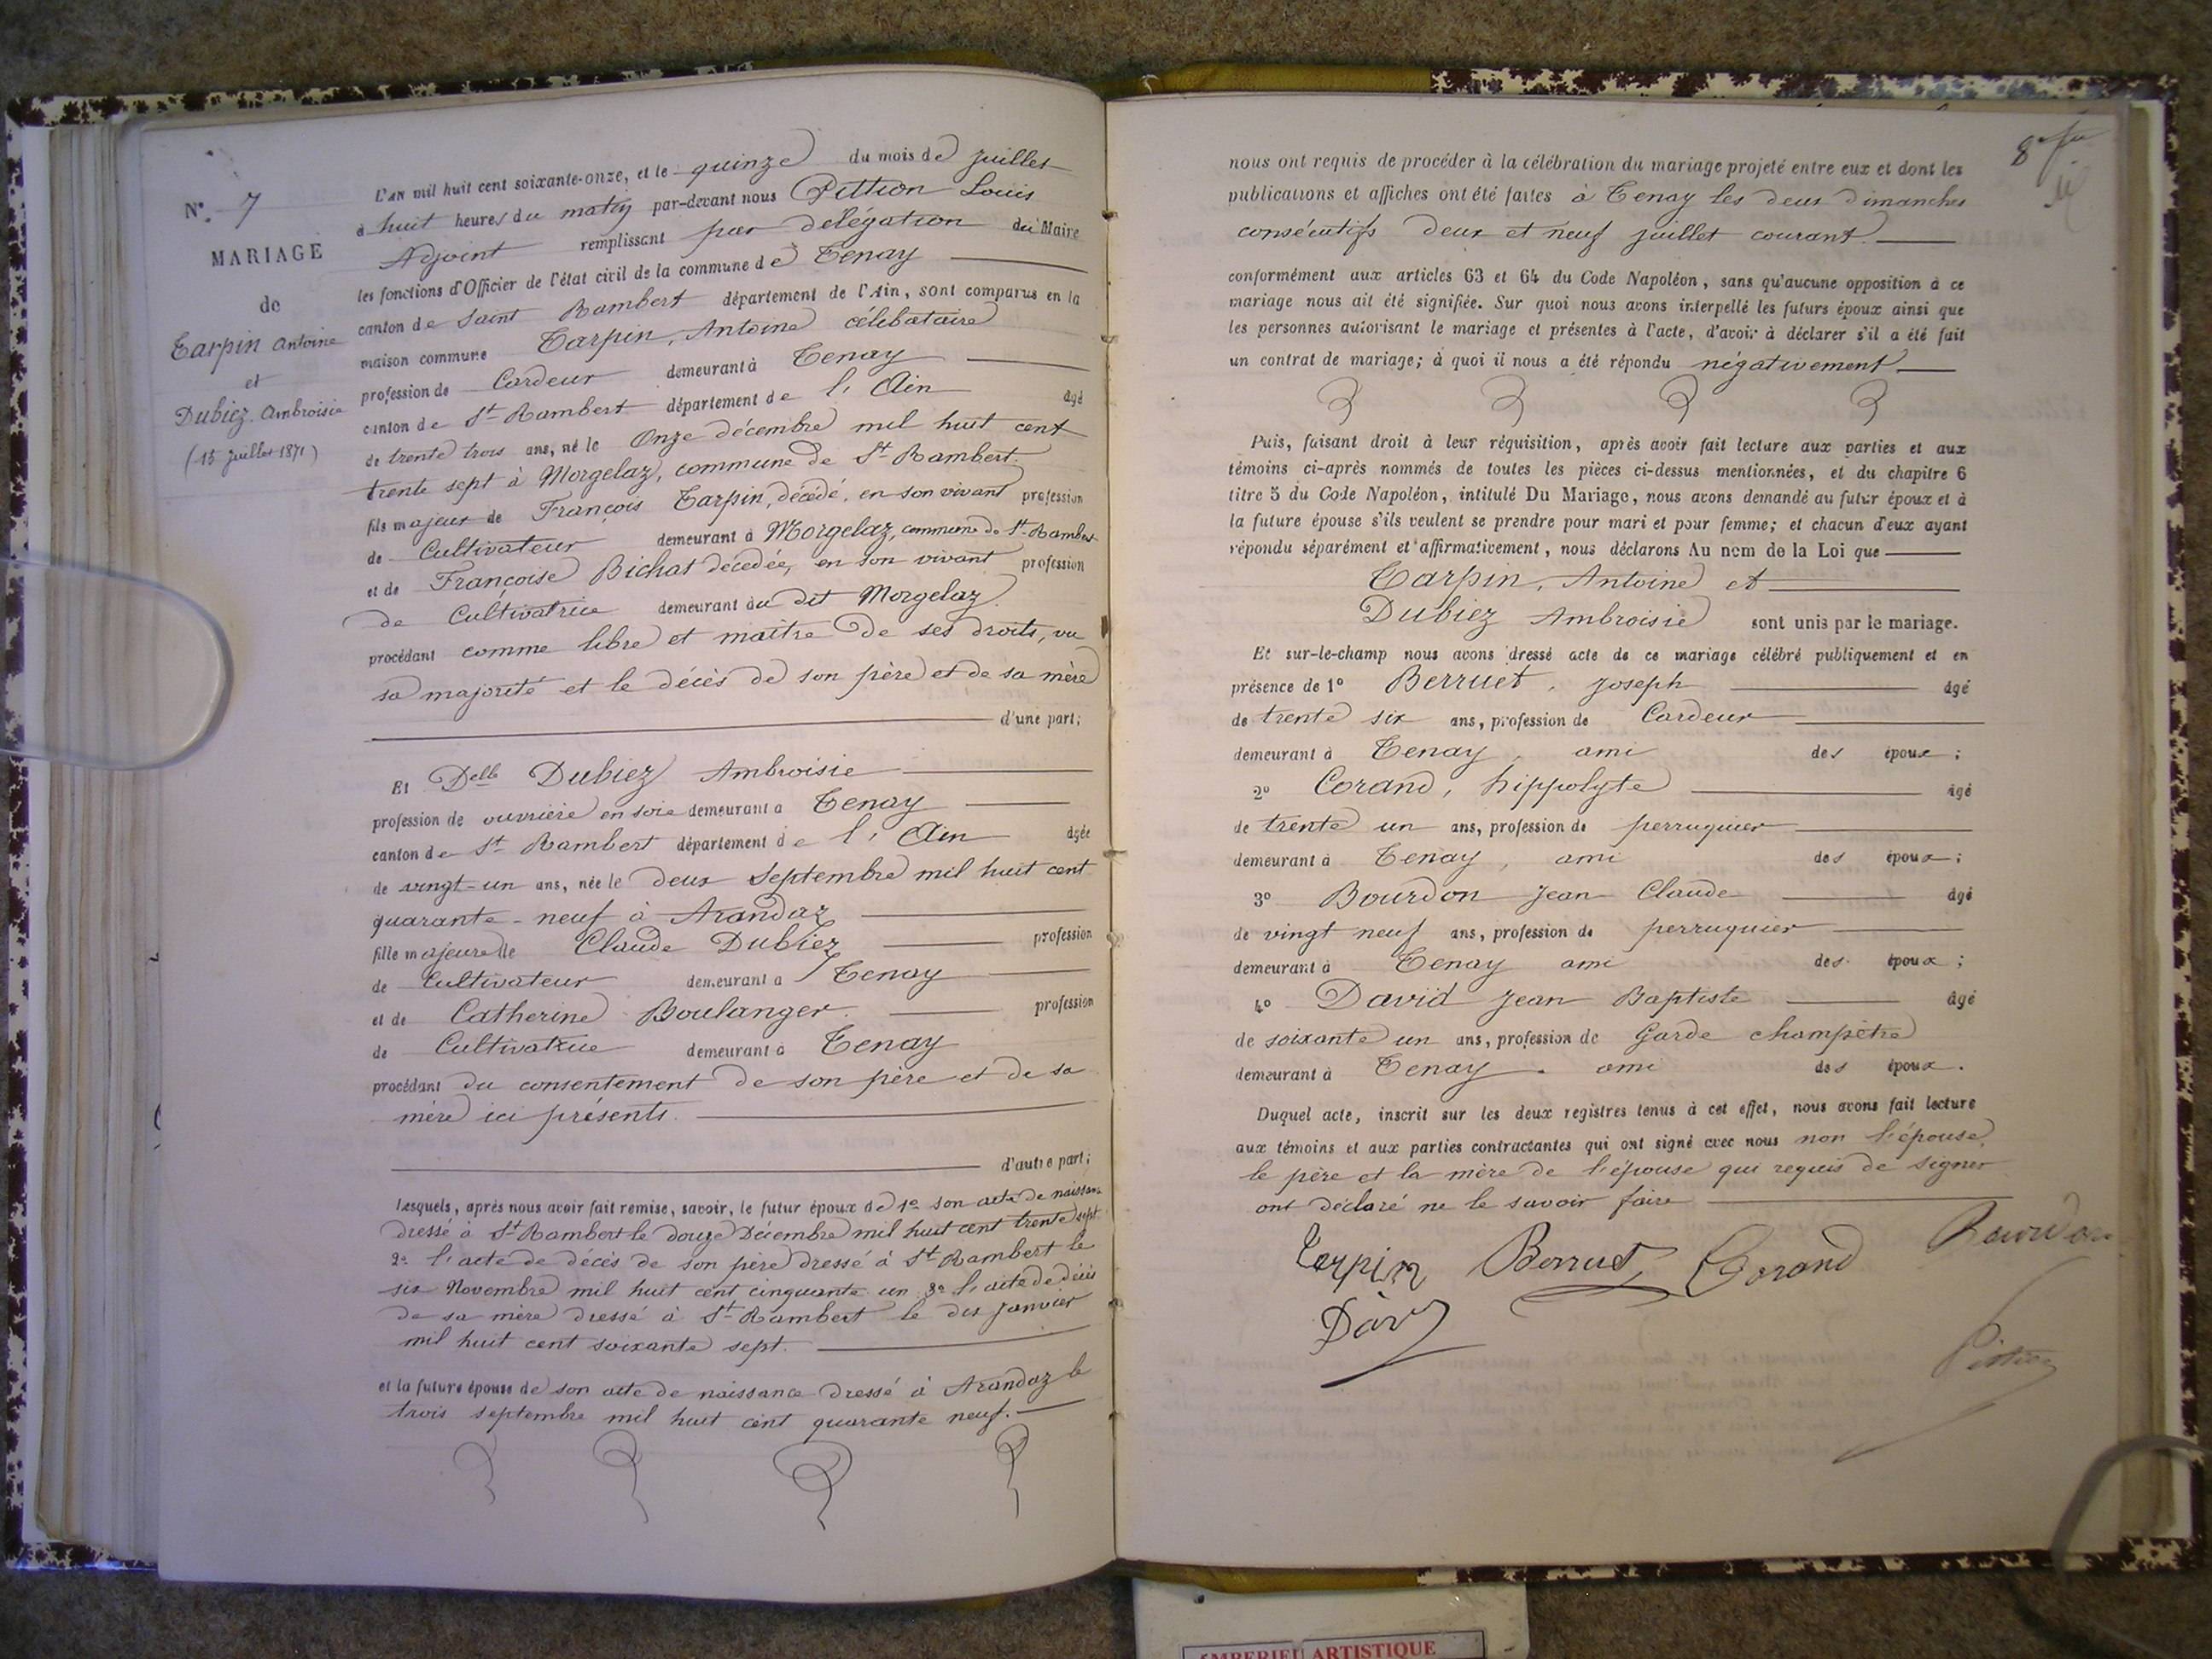 N° 7
MARIAGE
de
Tarpin Antoine
et
Dubiez Ambroisie
(15 juillet 1871)
L'AN mil huit cent soixante-onze, et le quinze du mois de juillet
à huit heures du matin par-devant nous Pittion Louis
Adjoint remplissant par délégation du Maire
les fonctions d'Officier de l'état civil de la commune de Tenay
canton de Saint Rambert département de l'Ain, sont comparus en la
maison commune Tarpin, Antoine célibataire
profession de Cardeur demeurant à Tenay
canton de St Rambert département de l'Ain âgé
de trente trois ans, né le Onze décembre mil huit cent
trente sept à Morgelaz, commune de St Rambert
fils majeur de François Tarpin, décédé, en son vivant profession
de Cultivateur demeurant à Morgelaz, commune de St Rambert
et de Françoise Bichat décédée, en son vivant profession
de Cultivatrice demeurant au dit Morgelaz
procédant comme libre et maître de ses droits, vu
sa majorité et le décès de son père et de sa mère
d'une part;
Et Delle Dubiez Ambroisie
profession de ouvrière en soie demeurant à Tenay
canton de St Rambert département de l'Ain âgée
de vingt-un ans, née le deux Septembre mil huit cent
quarante-neuf à Arandaz
fille majeure de Claude Dubiez profession
de Cultivateur demeurant à Tenay
et de Catherine Boulanger profession
de Cultivatrice demeurant à Tenay
procédant du consentement de son père et de sa
mère ici présents.
d'autre part;
Lesquels, après nous avoir fait remise, savoir, le futur époux de 1° son acte de naissance
dressé à St Rambert le douze Décembre mil huit cent trente sept
2° l'acte de décès de son père dressé à St Rambert le
six Novembre mil huit cent cinquante un 3° l'acte de décès
de sa mère dressé à St Rambert le dix Janvier
mil huit cent soixante sept.
et la future épouse de son acte de naissance dressé à Arandaz le
trois septembre mil huit cent quarante neuf.
8
nous ont requis de procéder à la célébration du mariage projeté entre eux et dont les
publications et affiches ont été faites à Tenay les deux Dimanches
consécutifs deux et neuf juillet courant.
conformément aux articles 63 et 64 du Code Napoléon, sans qu'aucune opposition à ce
mariage nous ait été signifiée. Sur quoi nous avons interpellé les futurs époux ainsi que
les personnes autorisant le mariage et présentes à l'acte, d'avoir à déclarer s'il a été fait
un contrat de mariage; à quoi il nous a été répondu négativement
Puis, faisant droit à leur réquisition, après avoir fait lecture aux parties et aux
témoins ci-après nommés de toutes les pièces ci-dessus mentionnées, et du chapitre 6
titre 5 du Code Napoléon, intitulé Du Mariage, nous avons demandé au futur époux et à
la future épouse s'ils veulent se prendre pour mari et pour femme; et chacun d'eux ayant
répondu séparément et affirmativement, nous déclarons Au nom de la Loi que
Tarpin, Antoine et
Dubiez Ambroisie sont unis par le mariage.
Et sur-le-champ nous avons dressé acte de ce mariage célébré publiquement et en
présence de 1° Berruet, Joseph âgé
de trente six ans, profession de Cardeur
demeurant à Tenay, ami des époux;
2° Corand, hippolyte âgé
de trente un ans, profession de perruquier
demeurant à Tenay, ami des époux;
3° Bourdon Jean Claude âgé
de vingt neuf ans, profession de perruquier
demeurant à Tenay ami des époux;
4° David Jean Baptiste âgé
de soixante un ans, profession de Garde champêtre
demeurant à Tenay. ami des époux.
Duquel acte, inscrit sur les deux registres tenus à cet effet, nous avons fait lecture
aux témoins et aux parties contractantes qui ont signé avec nous non l'épouse,
le père et la mère de l'épouse qui requis de signer
ont déclaré ne le savoir faire
Tarpin Berruet Corand Bourdon
David
Pittion
AMBERIEU ARTISTIQUE